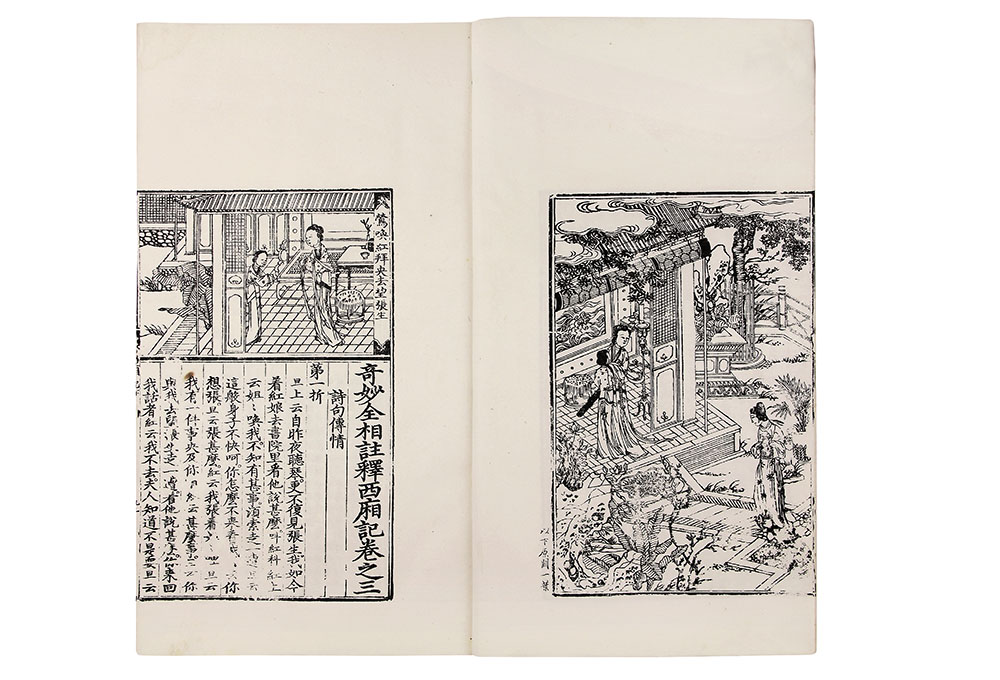 以下原闕一葉
鶯喚紅拜央去望張生
奇妙全相註釋西廂記卷之三
詩句傳情
第一折
旦上云自昨夜聽琴更不復見張生我如今
着紅娘去書院里看他說甚麽叫紅科紅上
云姐〻喚我不知有甚事湏索走一遭
這般身子不快呵你怎麽不來看我 你
想張旦云張甚麽紅云我張着 旦云
我有一件事央及你紅云甚麽事旦云你
與我去望張生走一遭看他說甚麽你來回
我話者紅云我不去夫人知道不是耍旦云